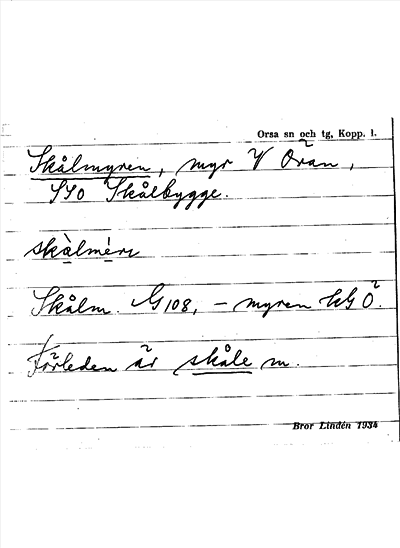 Orsa sn och tg, Kopp. l.
Skålmyren, myr V Öran,
SSO Skålbygge.
skàlmèrṇ
Skålm. G 108, – myren KG Ö.
Förleden är skåle m.
Bror Lindén 1934